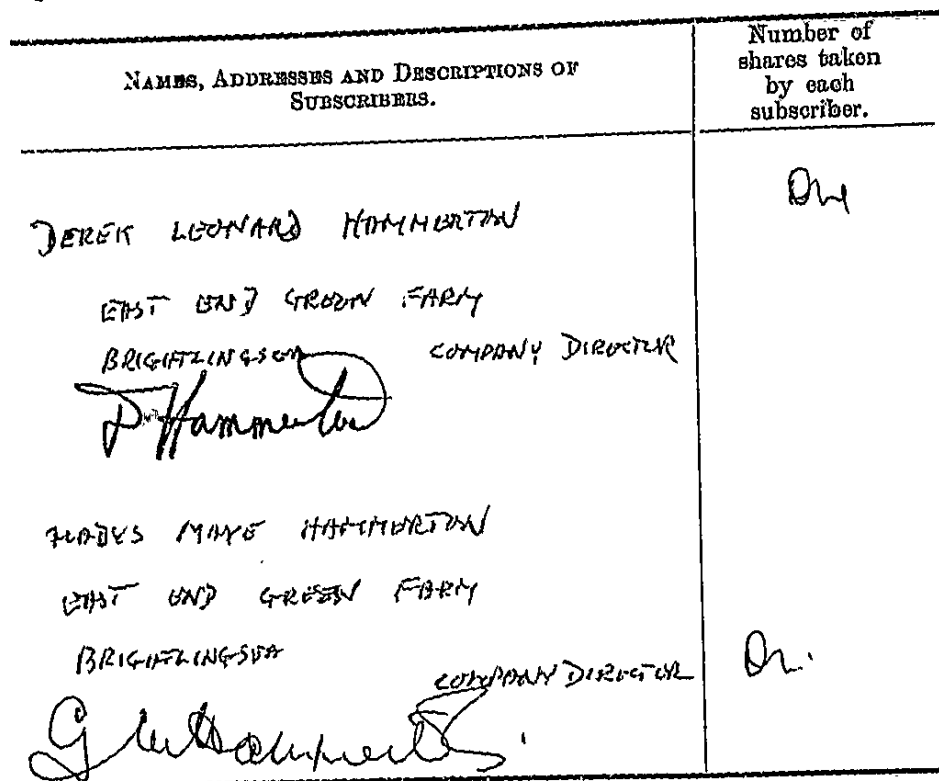 NAMES, ADDRESSES AND DESCRIPTIONS OF
SUBSCRIBERS.
Number of
shares taken
by each
subscriber.
DEREK LEONARD HAMMERTON
One
EAST END GREEN FARM
BRIGHTLINGSEA COMPANY DIRECTOR
D Hammerton
MAYE HAMMERTON
EAST END GREEN FARM
BRIGHTLINGSEA
COMPANY DIRECTOR
One
G M Hammerton